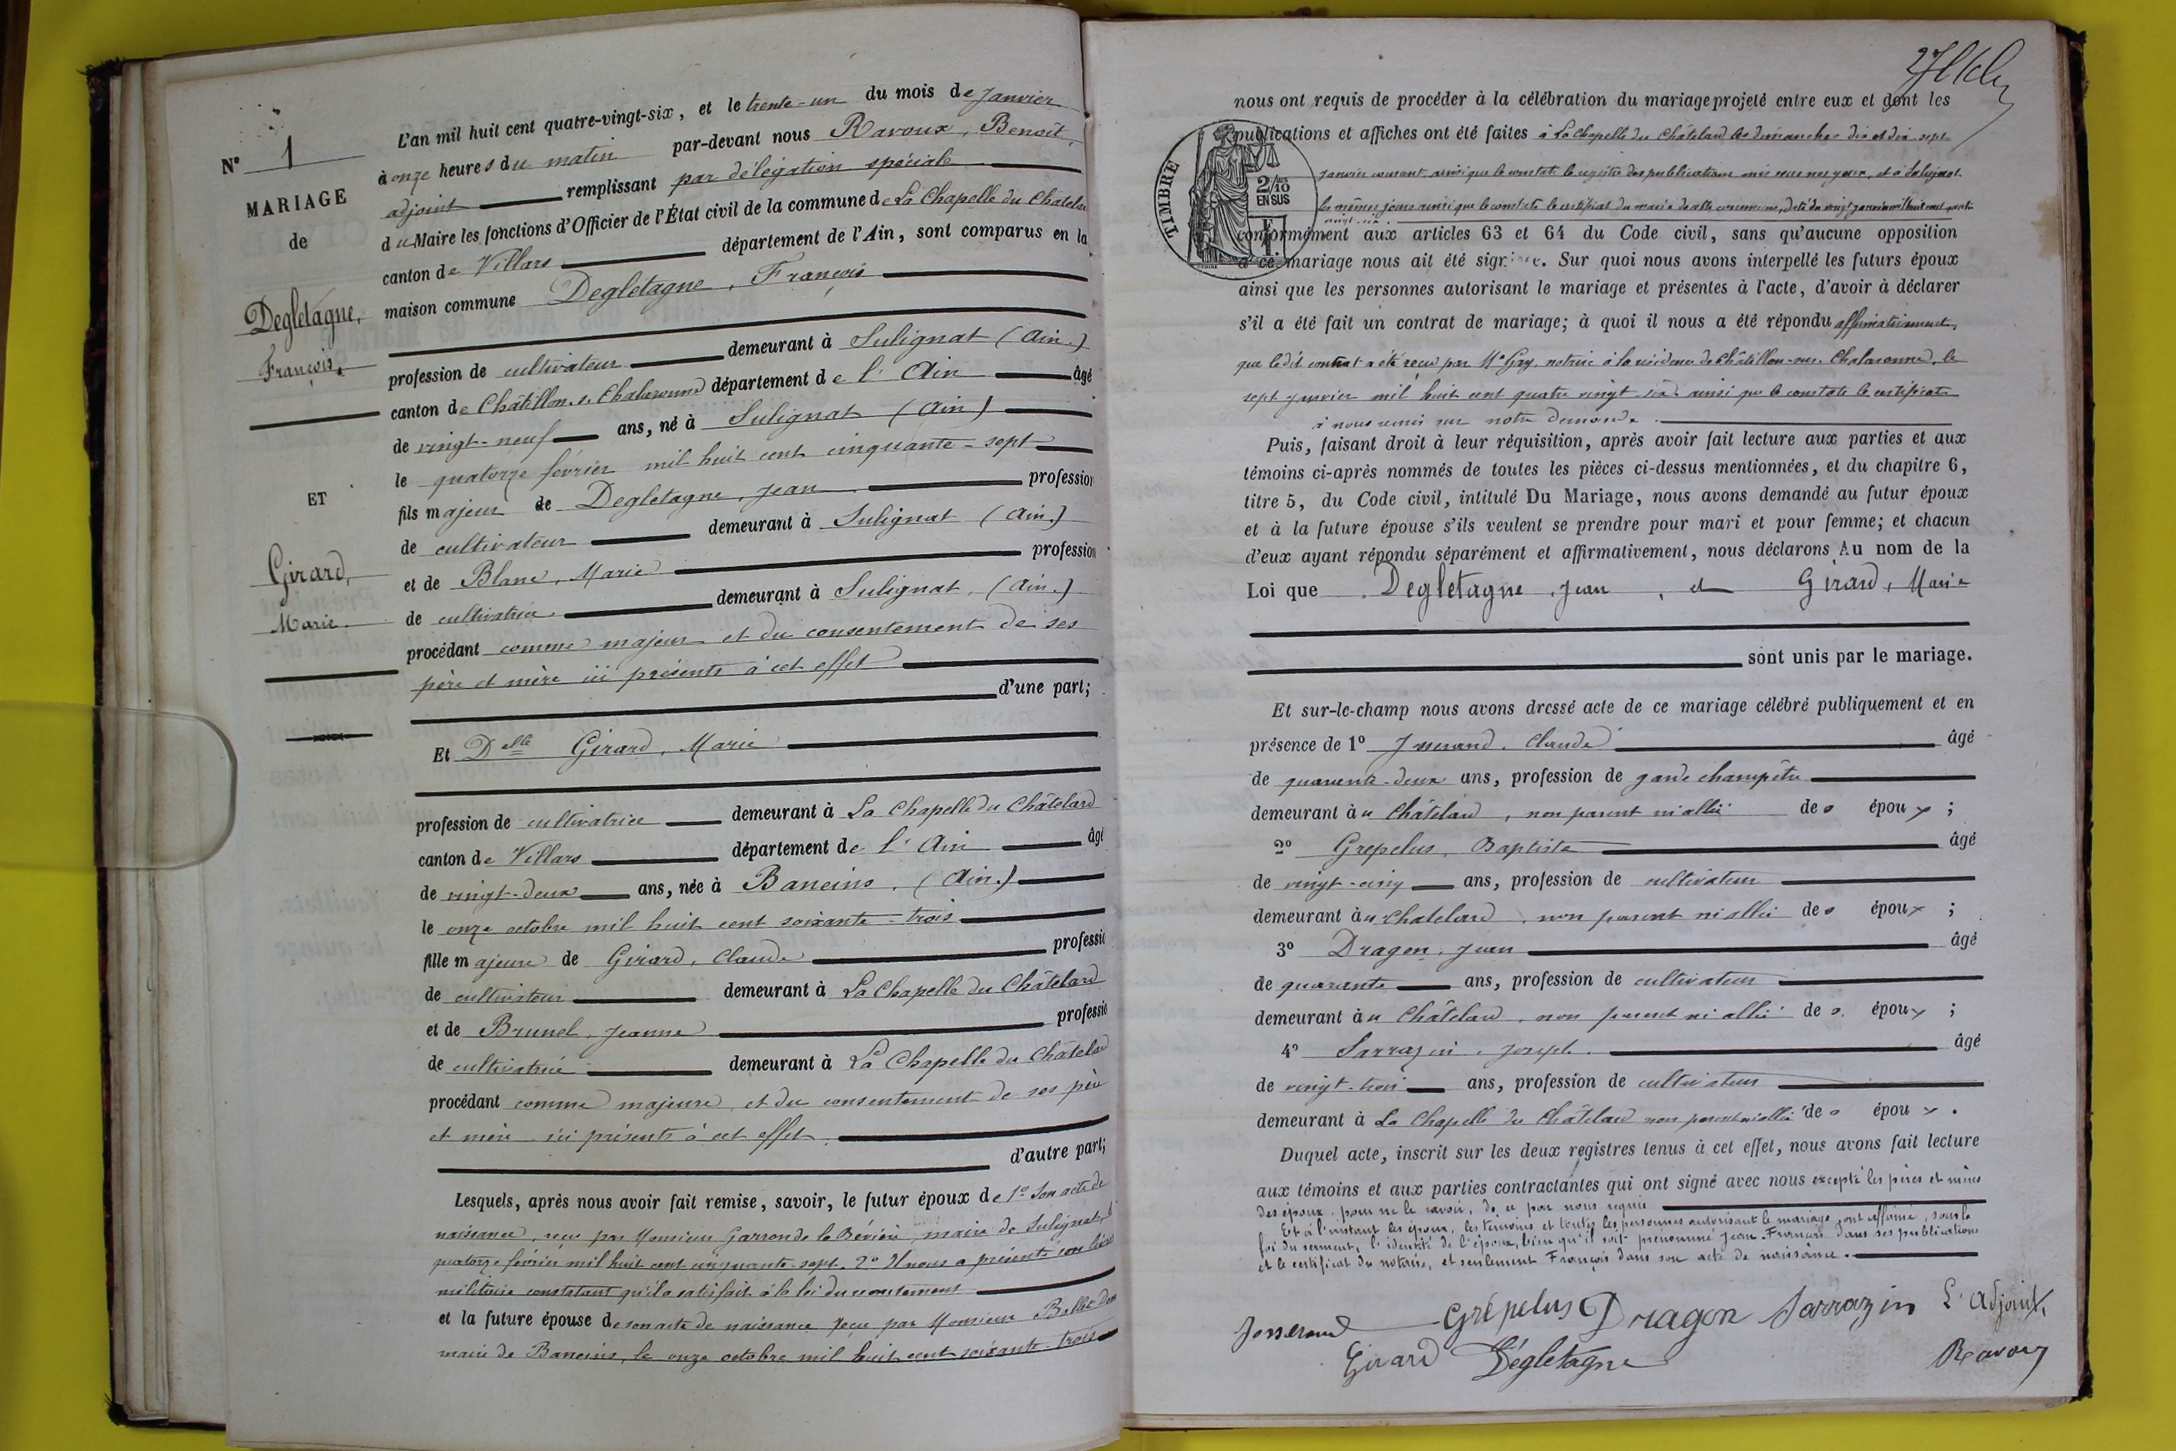 N° 1
MARIAGE
de
Degletagne,
François.
ET
Girard,
Marie.
L'an mil huit cent quatre-vingt-six, et le trente-un du mois de Janvier
à onze heures du matin par-devant nous Ravoux, Benoît,
adjoint remplissant par délégation spéciale
du Maire les fonctions d'Officier de l'État civil de la commune de La Chapelle du Chatelard
canton de Villars département de l'Ain, sont comparus en la
maison commune Degletagne, François
profession de cultivateur demeurant à Sulignat (Ain.)
canton de Châtillon s. Chalaronne département de l'Ain âgé
de vingt-neuf ans, né à Sulignat (Ain)
le quatorze février mil huit cent cinquante-sept
fils majeur de Degletagne, Jean profession
de cultivateur demeurant à Sulignat (Ain.)
et de Blanc, Marie profession
de cultivatrice demeurant à Sulignat, (Ain.)
procédant comme majeur et du consentement de ses
père et mère ici présents à cet effet
d'une part;
Et Delle Girard, Marie
profession de cultivatrice demeurant à La Chapelle du Châtelard
canton de Villars département de l'Ain âgé
de vingt-deux ans, née à Baneins, (Ain.)
le onze octobre mil huit cent soixante-trois
fille majeure de Girard, Claude professio
de cultivateur demeurant à La Chapelle du Châtelard
et de Brunel, Jeanne professio
de cultivatrice demeurant à La Chapelle du Châtelard
procédant comme majeure, et du consentement de ses père
et mère ici présents à cet effet.
d'autre part;
Lesquels, après nous avoir fait remise, savoir, le futur époux de 1° Son acte de
naissance, reçu par Monsieur Garron de la Bévière, maire de Sulignat, le
quatorze février mil huit cent cinquante-sept. 2° Il nous a présenté son livret
militaire constatant qu'il a satisfait à la loi du recrutement
et la future épouse de son acte de naissance reçu par Monsieur
maire de Baneins, le onze octobre mil huit cent soixante-trois
nous ont requis de procéder à la célébration du mariage projeté entre eux et dont les
publications et affiches ont été faites à La Chapelle du Châtelard les dimanches dix et dix-sept
janvier courant ainsi que le constate le registre des publications mis sous nos yeux, et à Sulignat
les mêmes jours ainsi que le constate le certificat du maire de cette commune, daté du vingt janvier mil huit cent quatre
vingt-six.
TIMBRE
2/10
EN SUS
conformément aux articles 63 et 64 du Code civil, sans qu'aucune opposition
à ce mariage nous ait été signifiée. Sur quoi nous avons interpellé les futurs époux
ainsi que les personnes autorisant le mariage et présentes à l'acte, d'avoir à déclarer
s'il a été fait un contrat de mariage; à quoi il nous a été répondu affirmativement,
que le dit contrat a été reçu par Me notaire à la résidence de Châtillon-sur-Chalaronne, le
sept janvier mil huit cent quatre vingt six ainsi que le constate le certificat
à nous remis sur notre demande.
Puis, faisant droit à leur réquisition, après avoir fait lecture aux parties et aux
témoins ci-après nommés de toutes les pièces ci-dessus mentionnées, et du chapitre 6,
titre 5, du Code civil, intitulé Du Mariage, nous avons demandé au futur époux
et à la future épouse s'ils veulent se prendre pour mari et pour femme; et chacun
d'eux ayant répondu séparément et affirmativement, nous déclarons Au nom de la
Loi que Degletagne, Jean, et Girard, Marie
sont unis par le mariage.
Et sur-le-champ nous avons dressé acte de ce mariage célébré publiquement et en
présence de 1° Josserand, Claude âgé
de quarante-deux ans, profession de garde champêtre
demeurant au Châtelard, non parent ni allié des époux;
2° Grepelus, Baptiste âgé
de vingt-cinq ans, profession de cultivateur
demeurant au Chatelard, non parent ni allié des époux;
3° Dragon, Jean âgé
de quarante ans, profession de cultivateur
demeurant au Châtelard, non parent ni allié des époux;
4° Sarrazin, Joseph. âgé
de vingt-trois ans, profession de cultivateur
demeurant à La Chapelle du Châtelard non parent ni allié des époux.
Duquel acte, inscrit sur les deux registres tenus à cet effet, nous avons fait lecture
aux témoins et aux parties contractantes qui ont signé avec nous excepté les pères et mères
des époux, pour ne le savoir, de ce par nous requis
Et à l'instant les époux, les témoins et toutes les personnes autorisant le mariage ont affirmé, sous la
foi du serment, l'identité de l'époux, bien qu'il soit prénommé Jean-François dans ses publications
et le certificat du notaire, et seulement François dans son acte de naissance.
Josserand Grépelus Dragon Sarrazin L'Adjoint,
Girard Dégletagne Ravoux